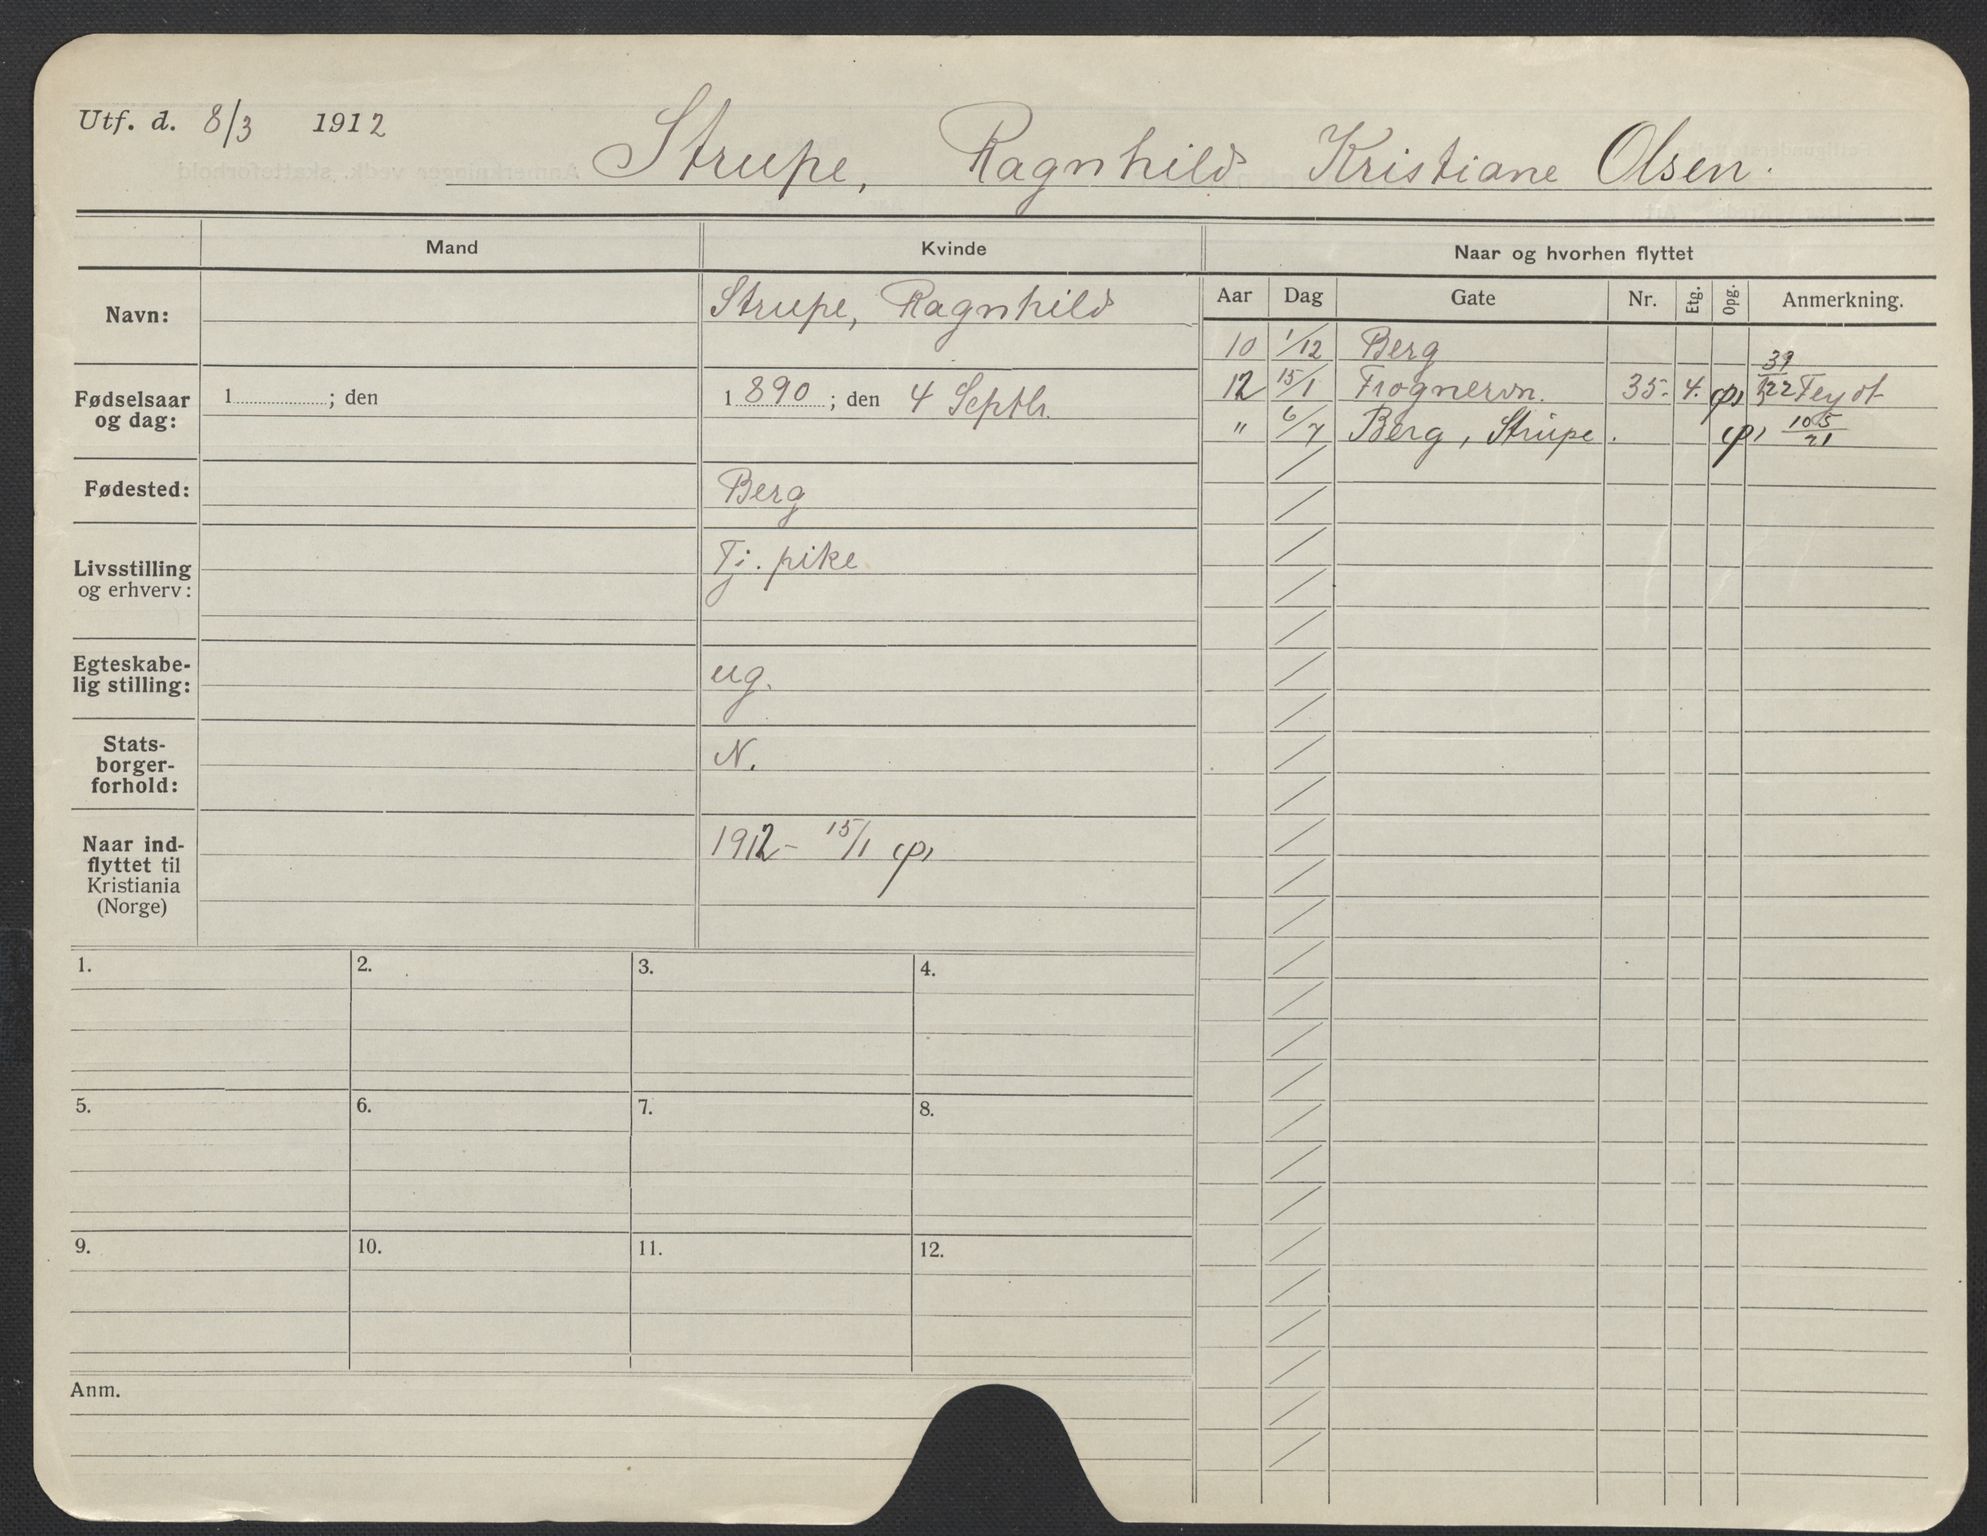 Utf. d. 8/3 1912
Strupe, Ragnhild Kristiane Olsen.
Mand
Kvinde
Naar og hvorhen flyttet
Navn:
Strupe, Ragnhild
Aar Dag Gate Nr. Etg. Opg. Anmerkning.
10 1/12 Berg
12 15/1 Frognervn. 35. 4. Feydt
" 6/7 Berg, Strupe. 105/21
Fødselsaar
og dag:
1 ; den
1 890 ; den 4 Septbr.
Fødested:
Berg
Livsstilling
og erhverv:
Tj. pike
Egteskabe-
lig stilling:
ug.
Stats-
borger-
forhold:
N.
Naar ind-
flyttet til
Kristiania
(Norge)
1912 - 15/1
1. 2. 3. 4.
5. 6. 7. 8.
9. 10. 11. 12.
Anm.